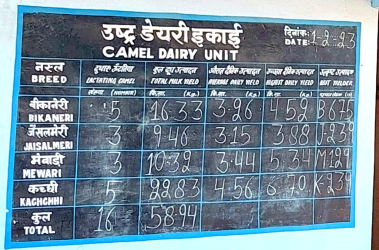 उष्ट्र डेयरी इकाई
CAMEL DAIRY UNIT
दिनांक:
DATE: 1-2-23
नस्ल
BREED
दुधारू ऊँटनियां
LACTATING CAMEL
कुल दूध उत्पादन
TOTAL MILK YIELD
AVERAGE DAILY YIELD
HIGHEST DAILY YIELD
BEST MILKER
संख्या
कि.ग्रा. (K.g.)
कि.ग्रा. (K.g.)
कि.ग्रा. (K.g.)
बीकानेरी
BIKANERI 5 16.33 3.26 4.52
जैसलमेरी
JAISALMERI 3 9.46 3.15 3.88 J-239
मेवाड़ी
MEWARI 3 10.32 3.44 5.34 M129
कच्छी
KACHCHHI 5 22.83 4.56 6.70 K-239
कुल
TOTAL 16 58.94